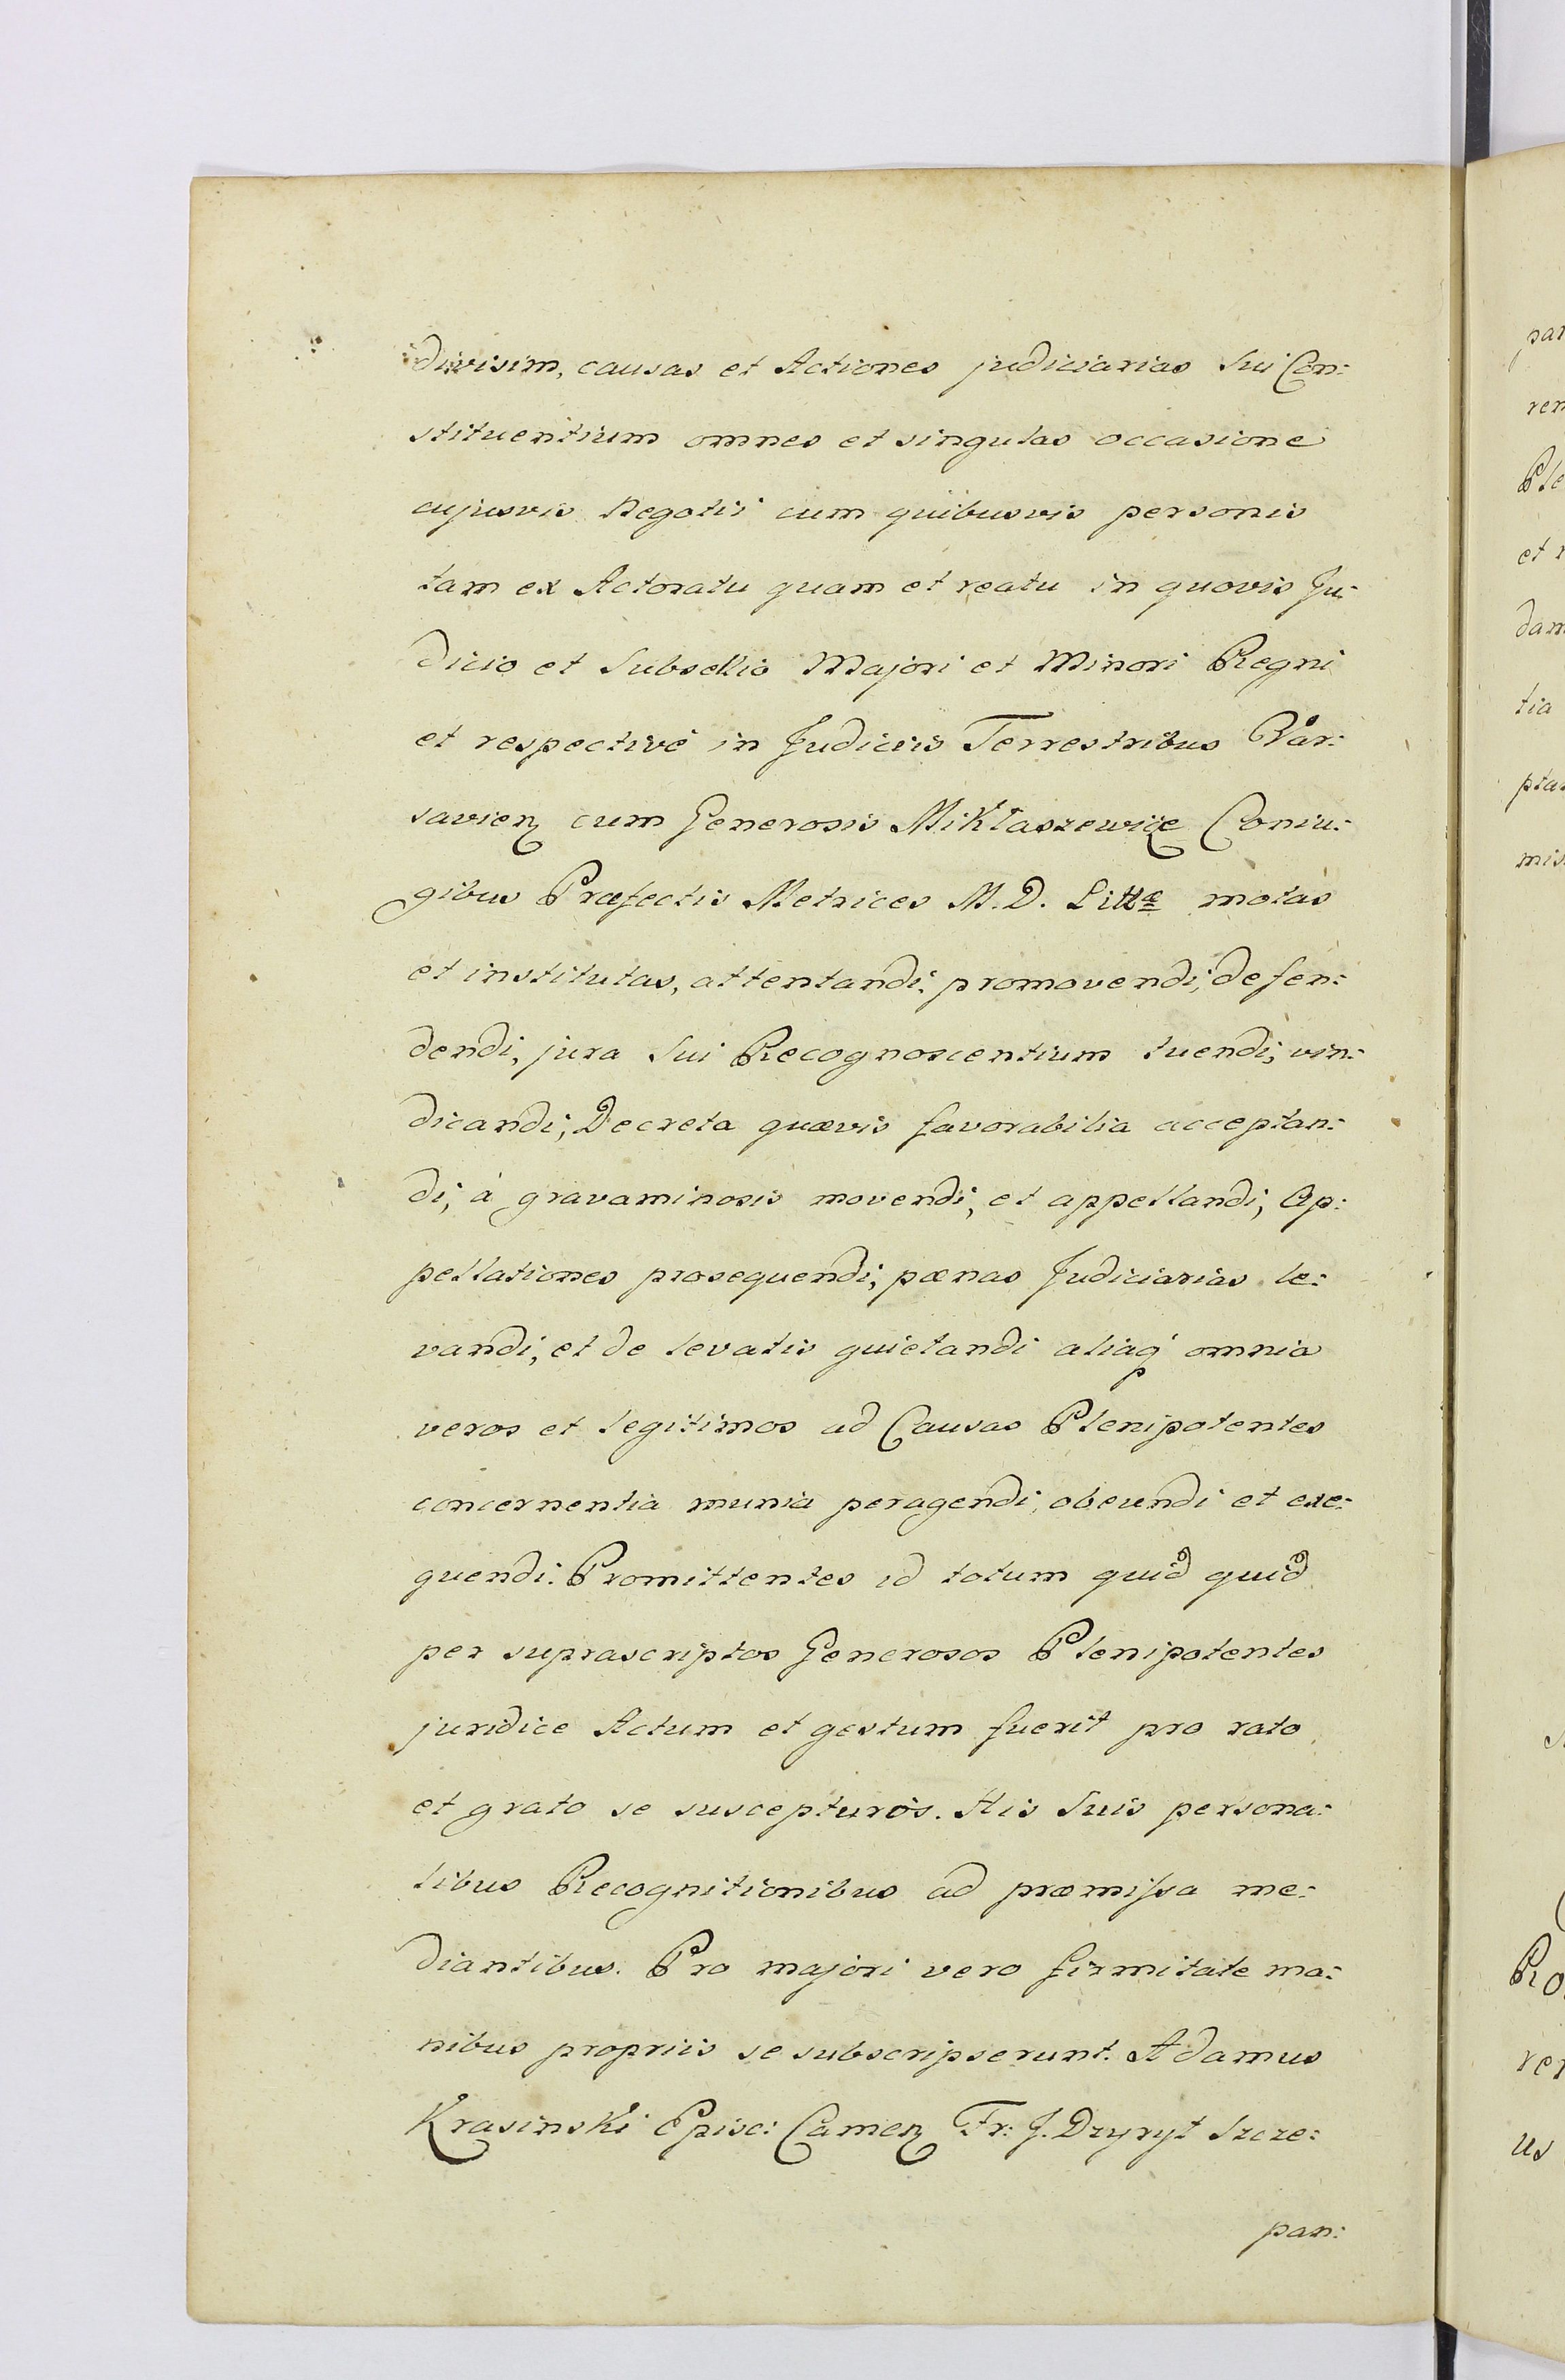 divisim, causas et Actiones judiciarias Sui Con:
stituentium omnes et singulas occasione
cujusvis Negotii cum quibusvis personis
tam ex Actoratu quam et reatu in quovis Ju:
dicio et Subsellio Majori et Minori Regni
et respectivé in Judiciis Terrestribus Var:
savien cum Generosis Miktaszewicze Coniu:
gibus Præfectis Metrices M. D. Littæ motas
et institutas, attentandi, promovendi, defen:
dendi, jura Sui Recognoscentium tuendi, vin:
dicandi, Decreta quævis favorabilia acceptan:
di, à gravaminosis movendi, et appellandi, Ap:
pellationes prosequendi, pœnas Judiciarias le:
vandi, et de levatis quietandi aliaq' omnia
veros et legitimos ad Causas Plenipotentes
concernentia munia peragendi, obeundi et exe:
quendi. Promittentes id totum quid quid
per suprascriptos Generosos Plenipotentes
juridice Actum et gestum fuerit pro rato
et grato se suscepturos. His Suis persona:
libus Recognitionibus ad præmissa me:
diantibus. Pro majori vero firmitate ma:
nibus propriis se subscripserunt. Adamus
Krasinski Episc: Camen Fr: J. Dzyryt Szcze:
pan:
par
ren
Ple
et
dam
tia
ptas
mis
Ro
ren
us